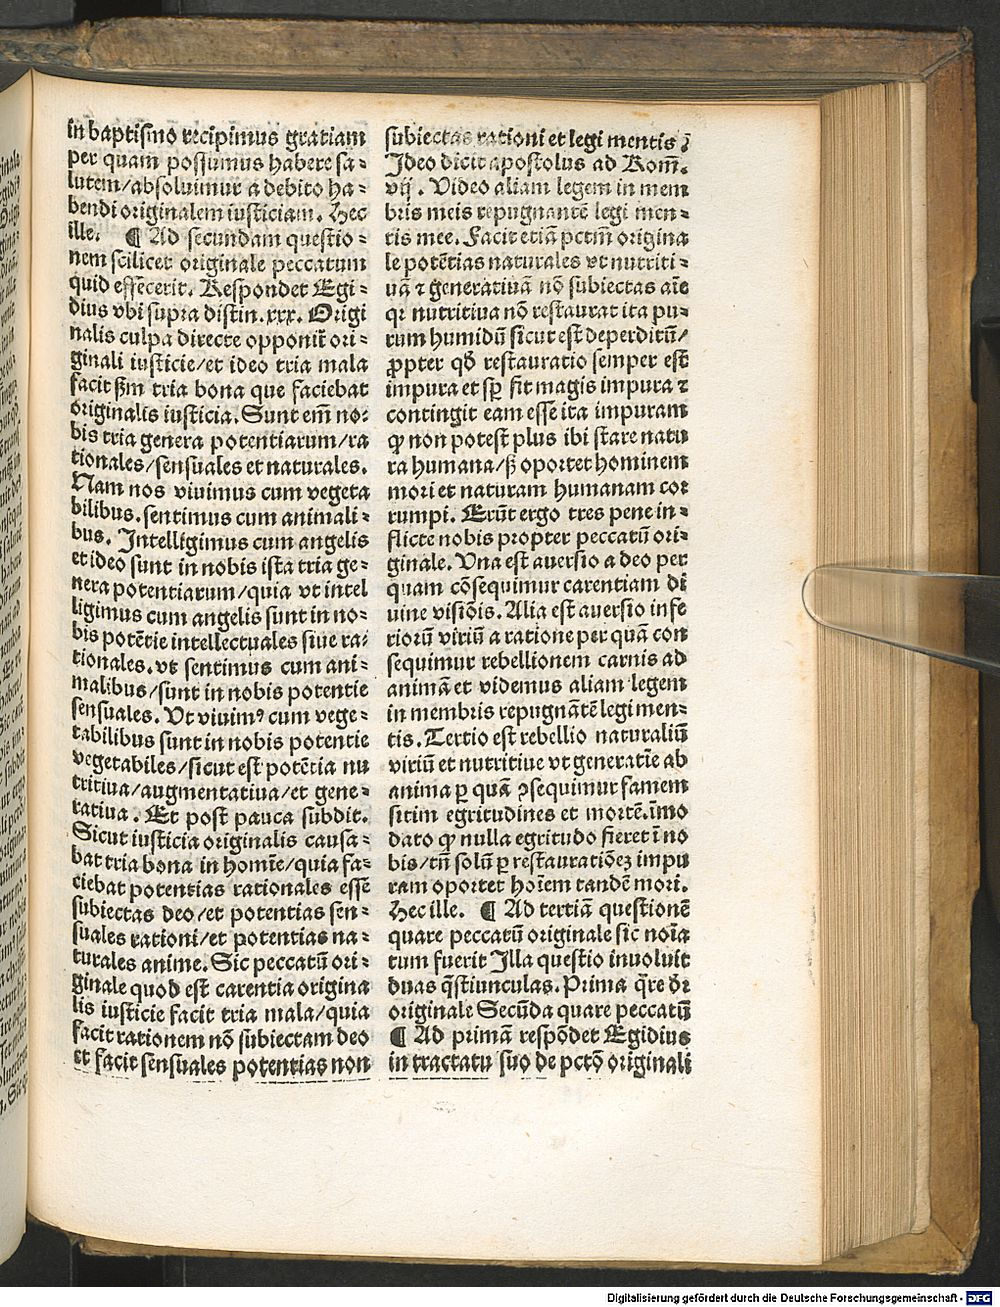 in baptismo recipimus gratiam
per quam possumus habere sa⸗
lutem/absoluimur a debito ha⸗
bendi originalem iusticiam. Hec
ille. ¶ Ad secundam questio⸗
nem scilicet originale peccatum
quid effecerit. Respondet Egi⸗
dius vbi supra distin.xxx. Origi
nalis culpa directe opponit᷑ ori⸗
ginali iusticie/et ideo tria mala
facit ẜm tria bona que faciebat
originalis iusticia. Sunt em̄ no⸗
bis tria genera potentiarum/ra
tionales/sensuales et naturales.
Nam nos viuimus cum vegeta
bilibus. sentimus cum animali⸗
bus. Intelligimus cum angelis
et ideo sunt in nobis ista tria ge⸗
nera potentiarum/quia vt intel
ligimus cum angelis sunt in no⸗
bis potētie intellectuales siue ra⸗
tionales. vt sentimus cum ani⸗
malibus/sunt in nobis potentie
sensuales. Vt viuimꝰ cum vege⸗
tabilibus sunt in nobis potentie
vegetabiles/sicut est potētia nu
tritiua/augmentatiua/et gene⸗
ratiua. Et post pauca subdit.
Sicut iusticia originalis causa⸗
bat tria bona in homīe/quia fa⸗
ciebat potentias rationales esse
subiectas deo/et potentias sen⸗
suales rationi/et potentias na⸗
turales anime. Sic peccatū ori⸗
ginale quod est carentia origina
lis iusticie facit tria mala/quia
facit rationem nō subiectam deo
et facit sensuales potentias non
subiectas rationi et legi mentis ⁊
Ideo dicit apostolus ad Rom̄.
vij. Video aliam legem in mem
bris meis repugnantē legi men⸗
tis mee. Facit etiā pctm̄ origina
le potētias naturales vt nutriti⸗
uā ⁊ generatiuā nō subiectas aīe
qꝛ nutritiua nō restaurat ita pu⸗
rum humidū sicut est deperditū/
ꝓpter qḋ restauratio semper est
impura et sꝑ fit magis impura ⁊
contingit eam esse ita impuram
ꝙ non potest plus ibi stare natu
ra humana/ẜ oportet hominem
mori et naturam humanam cor
rumpi. Erūt ergo tres pene in⸗
flicte nobis propter peccatū ori⸗
ginale. Vna est auersio a deo per
quam cōsequimur carentiam di
uine visiōis. Alia est auersio infe
riorū viriū a ratione per quā con
sequimur rebellionem carnis ad
animā et videmus aliam legem
in membris repugnātē legi men⸗
tis. Tertio est rebellio naturaliū
viriū et nutritiue vt generatīe ab
anima ꝑ quā ꝯsequimur famem
sitim egritudines et mortē. īmo
dato ꝙ nulla egritudo fieret ī no
bis/tn̄ solū ꝑ restauratiōeꝫ impu
ram oportet hoīem tandē mori.
Hec ille. ¶ Ad tertiā questionē
quare peccatū originale sic noīa
tum fuerit Illa questio inuoluit
duas q̄stiunculas. Prima q̄re dr̄
originale Secūda quare peccatū
¶ Ad primā respōdet Egidius
in tractatu suo de pctō originali
Digitalisierung gefördert durch die Deutsche Forschungsgemeinschaft - DFG